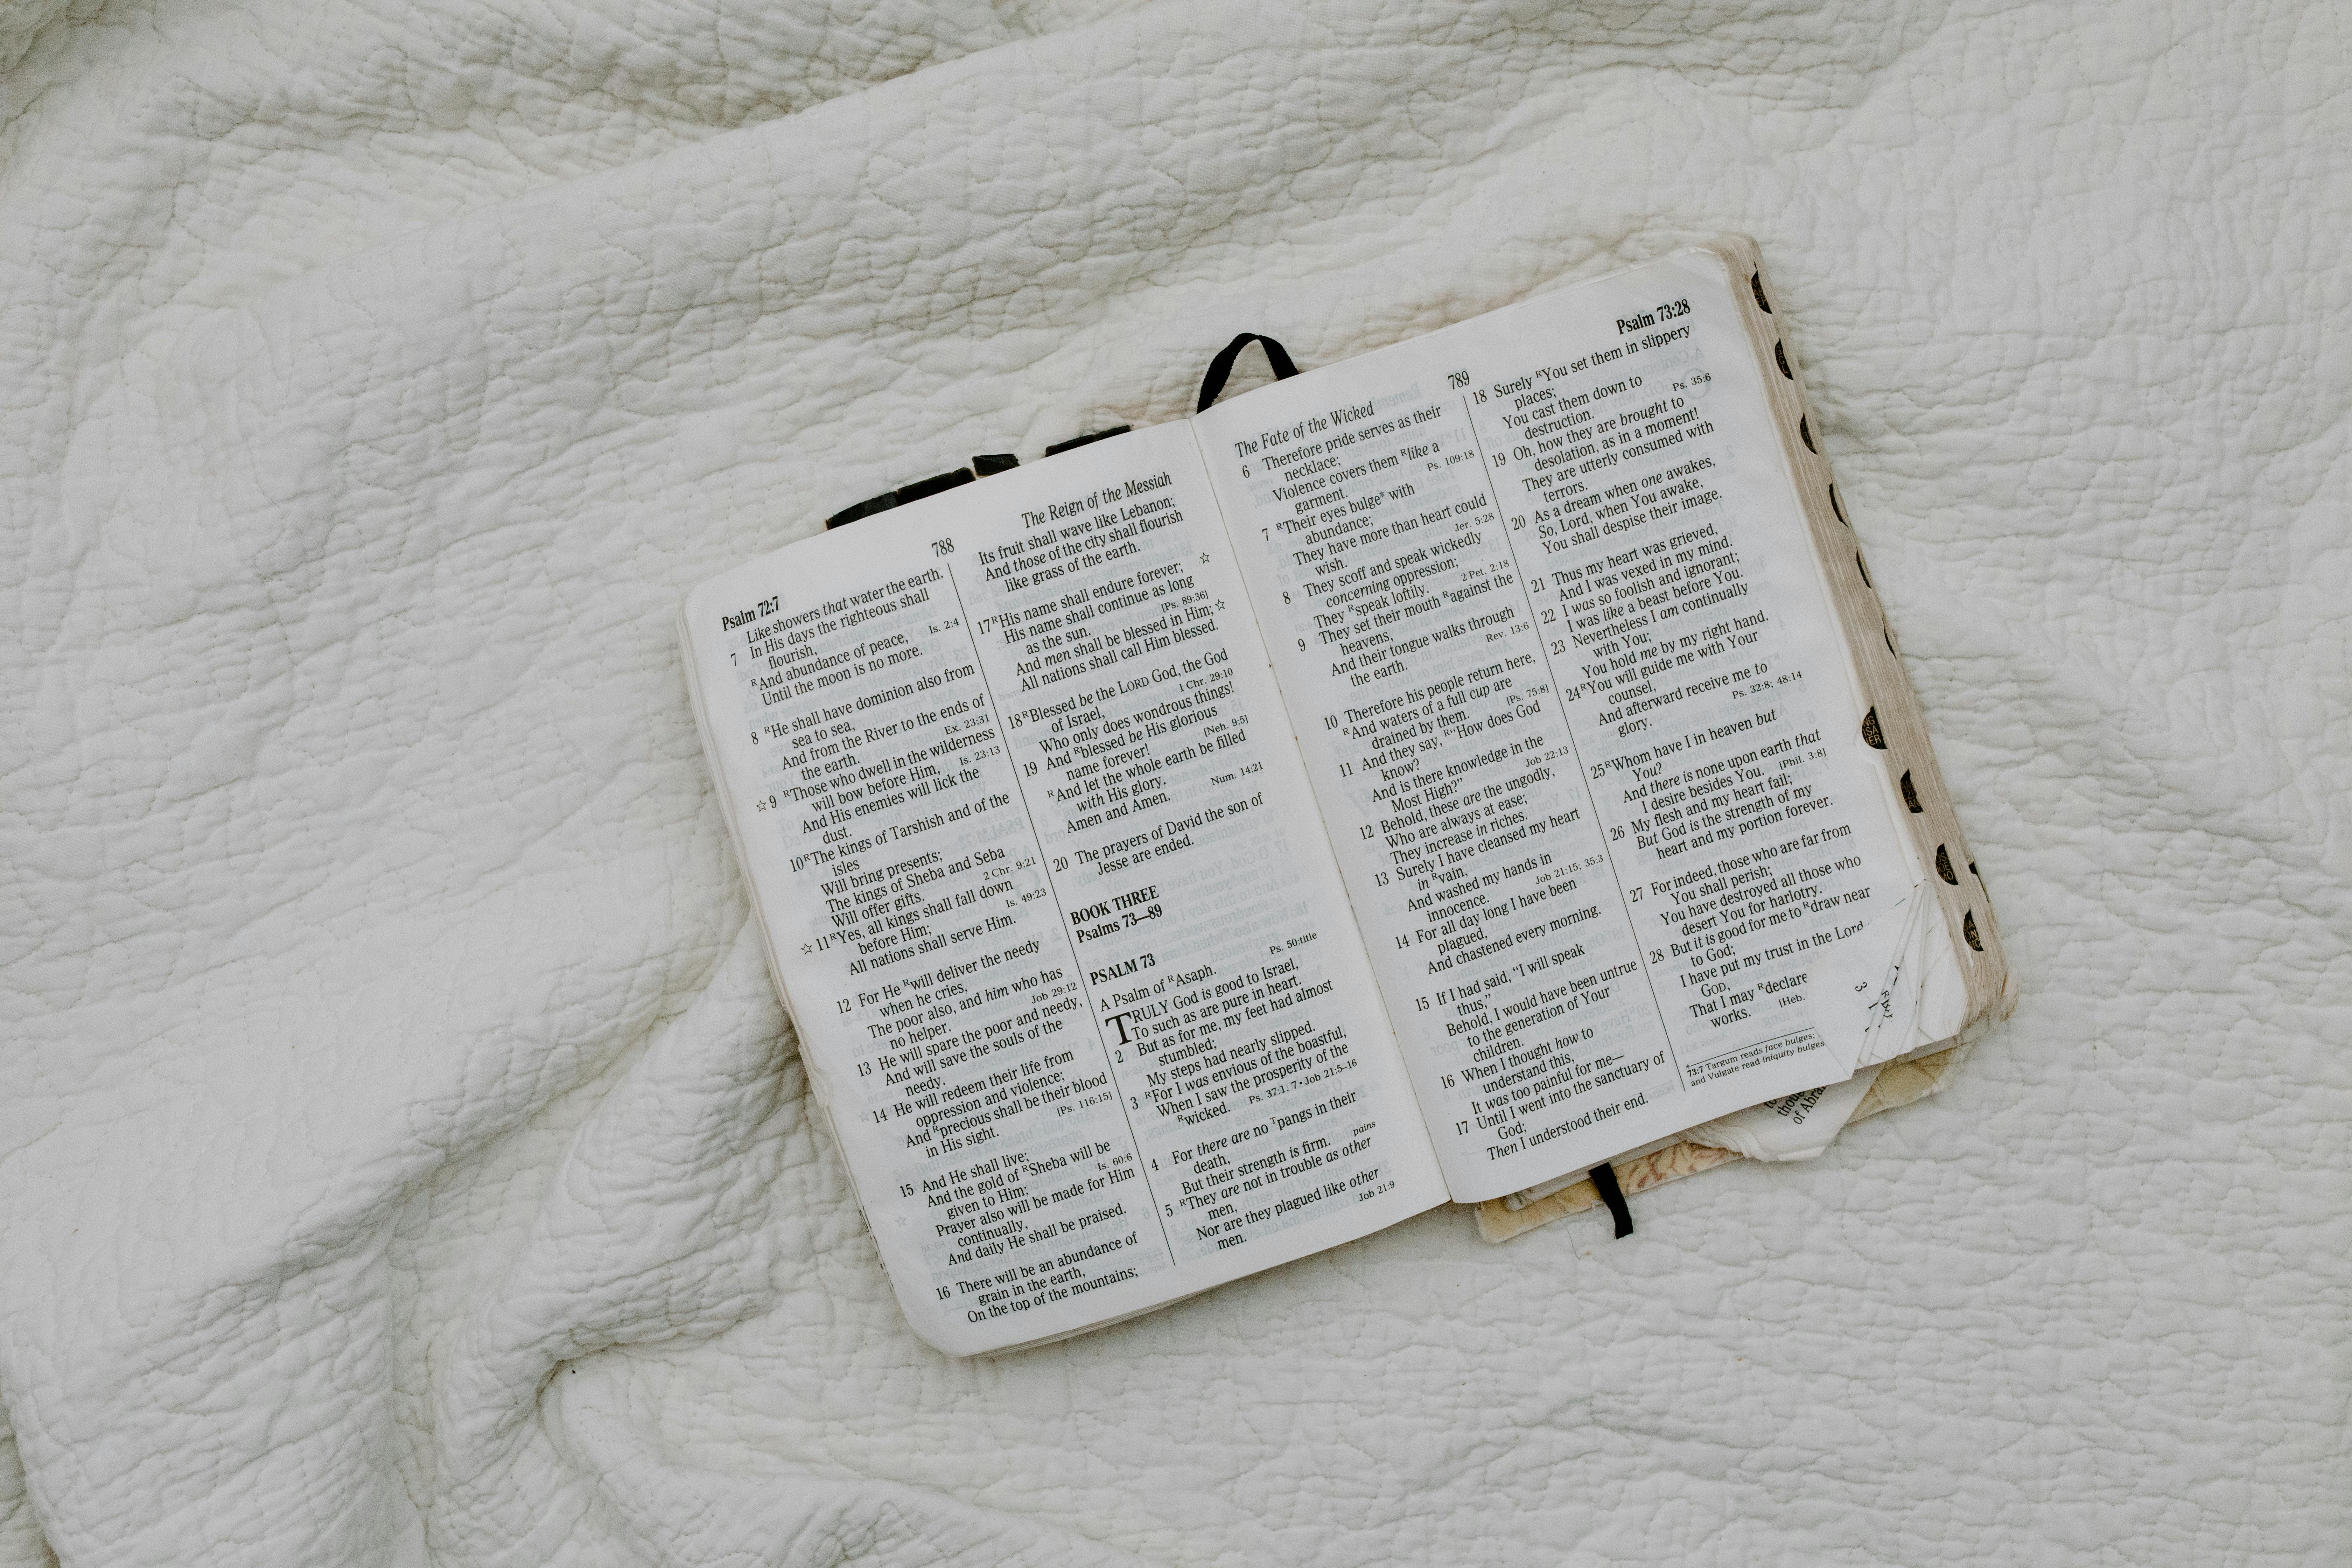 Psalm 72:7
788
Like showers that water the earth.
7 In His days the righteous shall
flourish,
RAnd abundance of peace,
Is. 2:4
Until the moon is no more.
8 RHe shall have dominion also from
sea to sea,
And from the River to the ends of
the earth.
Ex. 23:31
☆9 RThose who dwell in the wilderness
will bow before Him,
Is. 23:13
And His enemies will lick the
dust.
10RThe kings of Tarshish and of the
isles
Will bring presents;
The kings of Sheba and Seba
Will offer gifts.
2 Chr. 9:21
☆11RYes, all kings shall fall down
before Him;
Is. 49:23
All nations shall serve Him.
12 For He Rwill deliver the needy
when he cries,
The poor also, and him who has
no helper.
Job 29:12
13 He will spare the poor and needy,
And will save the souls of the
needy.
14 He will redeem their life from
oppression and violence;
And Rprecious shall be their blood
in His sight.
[Ps. 116:15]
15 And He shall live;
And the gold of RSheba will be
given to Him;
Is. 60:6
Prayer also will be made for Him
continually,
And daily He shall be praised.
16 There will be an abundance of
grain in the earth,
On the top of the mountains;
The Reign of the Messiah
Its fruit shall wave like Lebanon;
And those of the city shall flourish
like grass of the earth.
17RHis name shall endure forever; ☆
His name shall continue as long
as the sun.
[Ps. 89:36]
And men shall be blessed in Him;☆
All nations shall call Him blessed.
18RBlessed be the LORD God, the God
of Israel,
1 Chr. 29:10
Who only does wondrous things!
19 And Rblessed be His glorious
name forever!
[Neh. 9:5]
RAnd let the whole earth be filled
with His glory.
Num. 14:21
Amen and Amen.
20 The prayers of David the son of
Jesse are ended.
BOOK THREE
Psalms 73—89
PSALM 73
A Psalm of RAsaph.
Ps. 50:title
TRULY God is good to Israel,
To such as are pure in heart.
2 But as for me, my feet had almost
stumbled;
My steps had nearly slipped.
3 RFor I was envious of the boastful,
When I saw the prosperity of the
Rwicked.
Ps. 37:1, 7 • Job 21:5–16
4 For there are no Tpangs in their
death,
pains
But their strength is firm.
5 RThey are not in trouble as other
men,
Nor are they plagued like other
men.
Job 21:9
The Fate of the Wicked
789
6 Therefore pride serves as their
necklace;
Violence covers them Rlike a
garment.
Ps. 109:18
7 RTheir eyes bulge* with
abundance;
They have more than heart could
wish.
Jer. 5:28
8 They scoff and speak wickedly
concerning oppression;
They Rspeak loftily.
2 Pet. 2:18
9 They set their mouth Ragainst the
heavens,
And their tongue walks through
the earth.
Rev. 13:6
10 Therefore his people return here,
RAnd waters of a full cup are
drained by them.
[Ps. 75:8]
11 And they say, R“How does God
know?
And is there knowledge in the
Most High?”
Job 22:13
12 Behold, these are the ungodly,
Who are always at ease;
They increase in riches.
13 Surely I have cleansed my heart
in Rvain,
And washed my hands in
innocence.
Job 21:15; 35:3
14 For all day long I have been
plagued,
And chastened every morning.
15 If I had said, “I will speak
thus,”
Behold, I would have been untrue
to the generation of Your
children.
16 When I thought how to
understand this,
It was too painful for me—
17 Until I went into the sanctuary of
God;
Then I understood their end.
Psalm 73:28
18 Surely RYou set them in slippery
places;
Ps. 35:6
You cast them down to
destruction.
19 Oh, how they are brought to
desolation, as in a moment!
They are utterly consumed with
terrors.
20 As a dream when one awakes,
So, Lord, when You awake,
You shall despise their image.
21 Thus my heart was grieved,
And I was vexed in my mind.
22 I was so foolish and ignorant;
I was like a beast before You.
23 Nevertheless I am continually
with You;
You hold me by my right hand.
24RYou will guide me with Your
counsel,
And afterward receive me to
glory.
Ps. 32:8; 48:14
25RWhom have I in heaven but
You?
And there is none upon earth that
I desire besides You.
[Phil. 3:8]
26 My flesh and my heart fail;
But God is the strength of my
heart and my portion forever.
27 For indeed, those who are far from
You shall perish;
You have destroyed all those who
desert You for harlotry.
28 But it is good for me to Rdraw near
to God;
I have put my trust in the Lord
GOD,
That I may Rdeclare
works.
[Heb.
*
73:7 Targum reads face bulges;
and Vulgate read iniquity bulges
of Abra